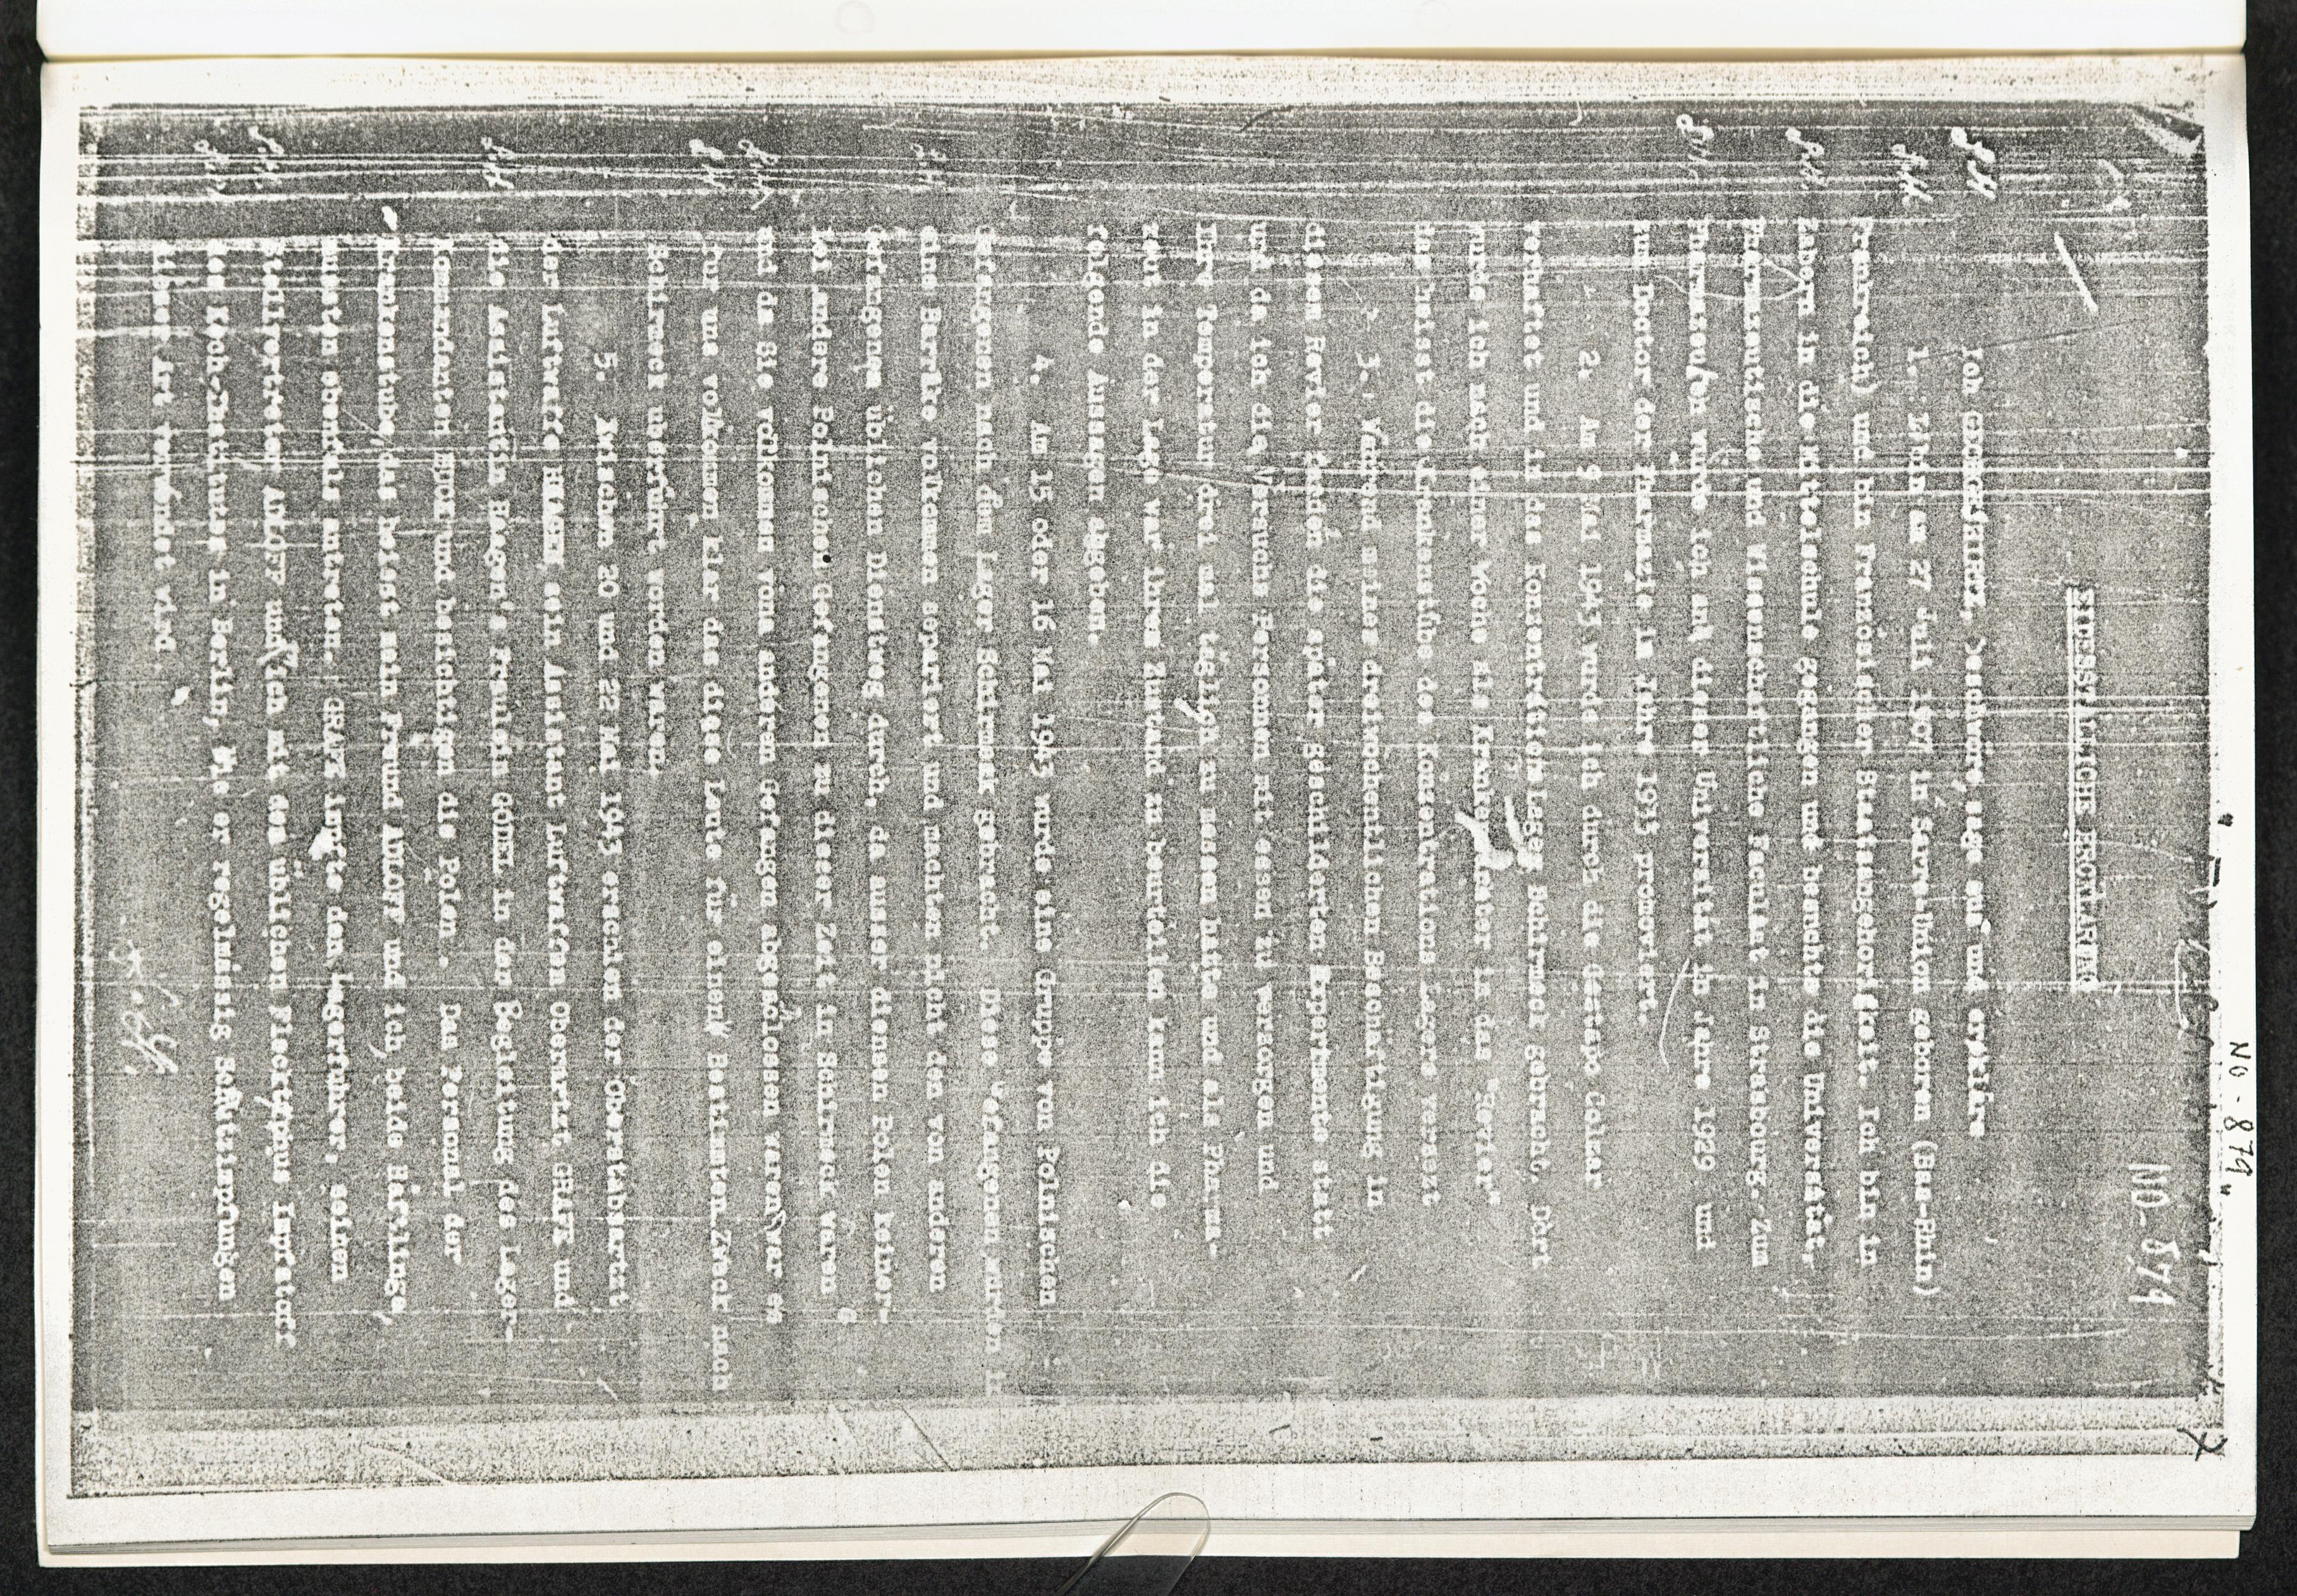 NO-879
NO-879
EIDESSTATTLICHE ERKLARUNG
Ich GEORGES HIRTZ, beschwore, sage aus und erklare
1. Ich bin am 27 Juli 1907 in Sarre-Union geboren (Bas-Rhin)
Frankreich) und bin Franzosischer Staatsangehorigkeit. Ich bin in
Zabern in die Mittelschule gegangen und besuchte die Universität,
Pharmazeutische und Wissenschaftliche Facultat in Strasbourg. Zum
Pharmazeuten wurde ich auf dieser Universitat im Jahre 1929 und
zum Doctor der Pharmazie im Jahre 1933 promoviert.
2. Am 9 Mai 1943 wurde ich durch die Gestapo Colmar
verhaftet und in das Konsentration Lager Schirmeck gebracht. Dort
wurde ich nach einer Woche als Krankenwarter in das "Revier"
das heisst die Krankenstübe des Konzentrations Lagers versezt
3. Während meines dreiwochentlichen Beschaftigung in
diesem Revier fanden die später Beschilderten Experimente statt
und da ich die Versuchs Personnen mit essen zu versorgen und
ihre Temperatur drei mal täglich zu messen hatte und als Pharma-
zeut in der Lage war ihren Zustand zu beurteilen kann ich die
folgende Aussagen abgeben.
4. Am 15 oder 16 Mai 1943 wurde eine Gruppe von Polnischen
Gefangenen nach dem Lager Schirmeck gebracht. Diese Gefangenen wurden in
eine Barracke volkommen separiert und machten nicht den von anderen
Gefangenen üblichen Dienstweg durch, da ausser diesen Polen keiner-
lei andere Polnischen Gefangenen zu dieser Zeit in Schirmeck waren
und da Sie volkommen von anderen Gefangen abgeschlossen waren war es
fur uns volkommen klar das diese Leute für einen Bestimmten Zweck nach
Schirmeck uberfürt worden waren.
5. Zwischen 20 und 22 Mai 1943 erschien der Oberstabsarzt
der Luftwaffe HAAGEN sein Assistent Luftwaffen Oberarzt GRAEFE und
die Assistentin Haagen's Fraulein CRODEL in der Begleitung des Lager-
Kommandanten BUCK und besichtigen die Polen. Das Personal der
Krankenstube, das heisst mein Freund ADLOFF und ich, beide Häftlinge,
mussten ebenfals antreten. GRAEFE impfte den Lagerfuhrer, seinen
Stellvertreter ADLOFF und mich mit den üblichen Flecktyphus Impfstoff
des Koch-Institutes in Berlin, wie er regelmässig Schuttzimpfungen
dieser Art verwendet wird.
G.H.